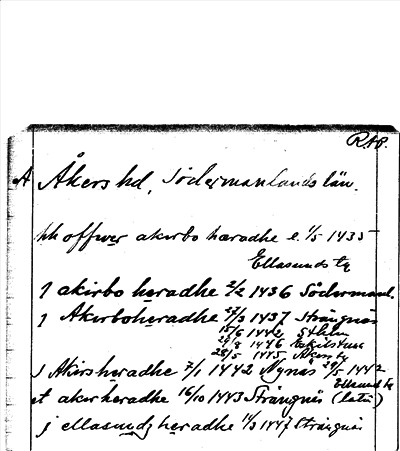 RAP.
A Åkers hd, Södermanlands län.
hh offwer akirbo hæradhe e. 1/5 1435
Ellasunds tg
J akirbo heradhe 2/2 1436 Söderman l.
J Akerboheradhe 27/3 1437 Strängnäs
15/6 1442 Sthlm
1446 Eskilstuna
28/5 1415 Åkers tg
J Akirsheradhe 7/1 1442 Nynäs 29/5 1442
Ellasund tg
et akerheradhe 16/10 1443 Strängnäs (latin)
j ellasundz heradhe 14/3 1447 Strängnäs